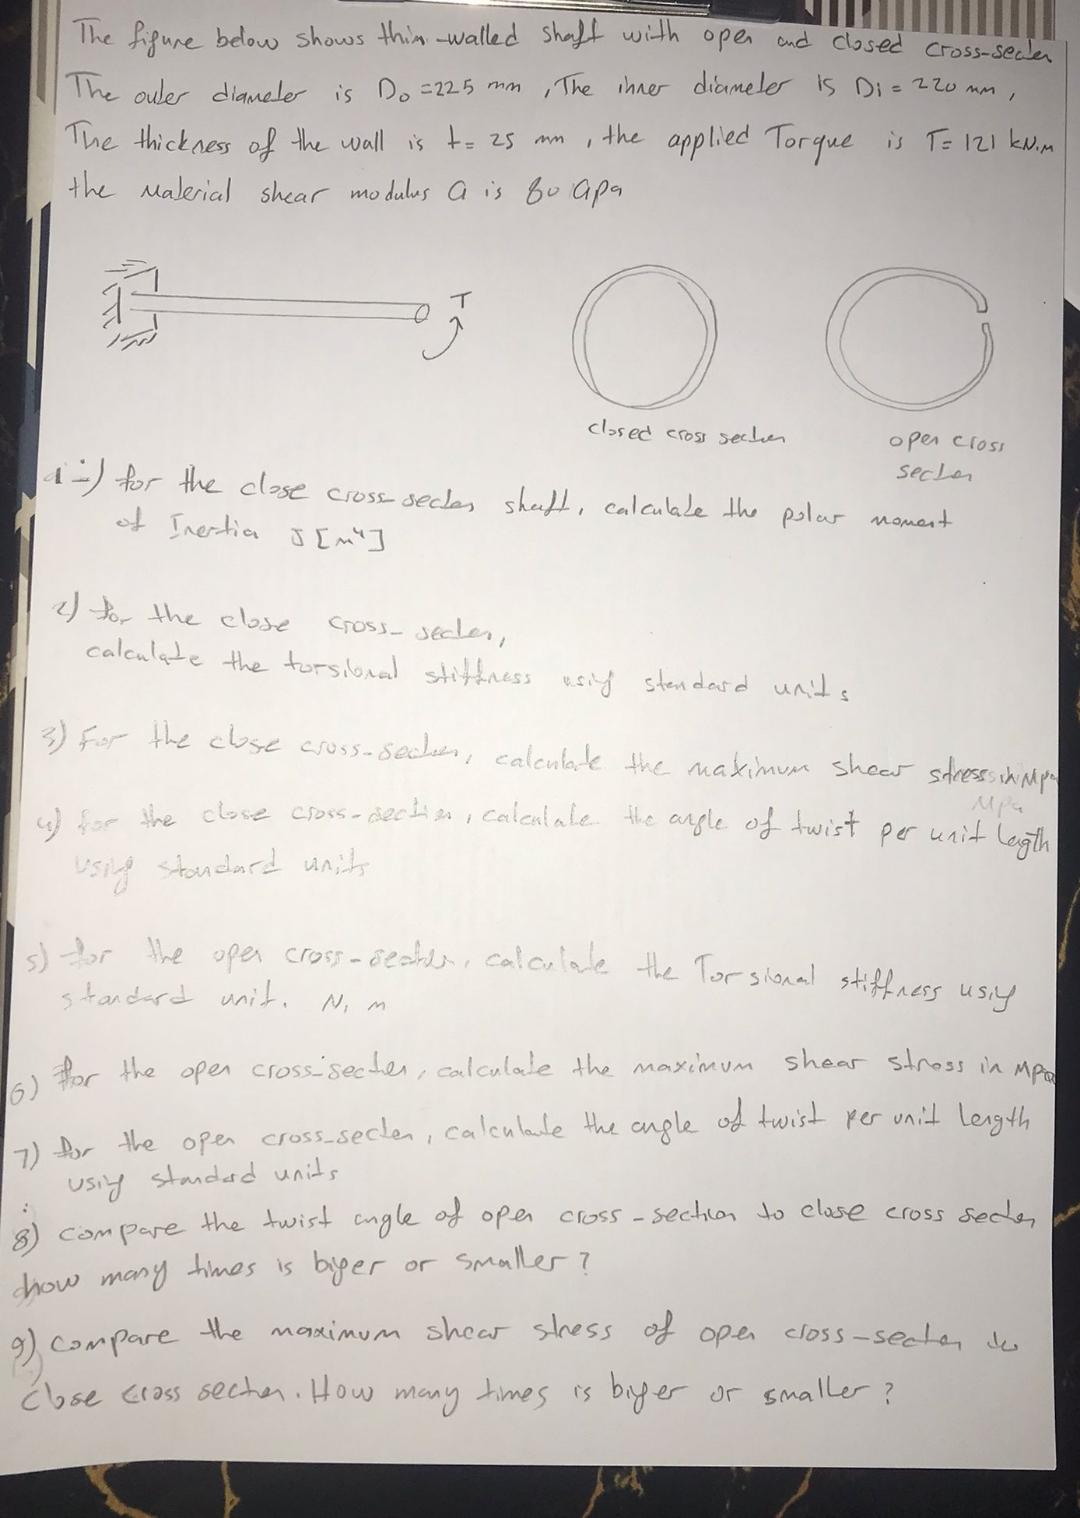 The figure below shows thin-walled shaft with open and closed cross-secten
The outer diameter is Do = 225 mm, The inner diameter is Di = 220 mm,
The thickness of the wall is t = 25 mm, the applied Torque is T = 121 kN.m
the material shear modulus G is 80 Gpa
T
closed cross section
open cross
secten
1) for the close cross-secten shaft, calculate the polar moment
of Inertia J [m⁴]
2) for the close cross-secten,
calculate the torsional stiffness using standard units
3) For the close cross-secten, calculate the maximum shear stress in Mpa
Mpa
4) for the close cross-section, calculate the angle of twist per unit length
using standard units
5) for the open cross-section, calculate the Torsional stiffness using
standard unit. N, m
6) for the open cross-secten, calculate the maximum shear stress in Mpa
7) for the open cross-secten, calculate the angle of twist per unit length
using standard units
8) compare the twist angle of open cross-section to close cross secten
how many times is biger or smaller?
9) compare the maximum shear stress of open cross-secten to
close cross secten. How many times is biger or smaller?